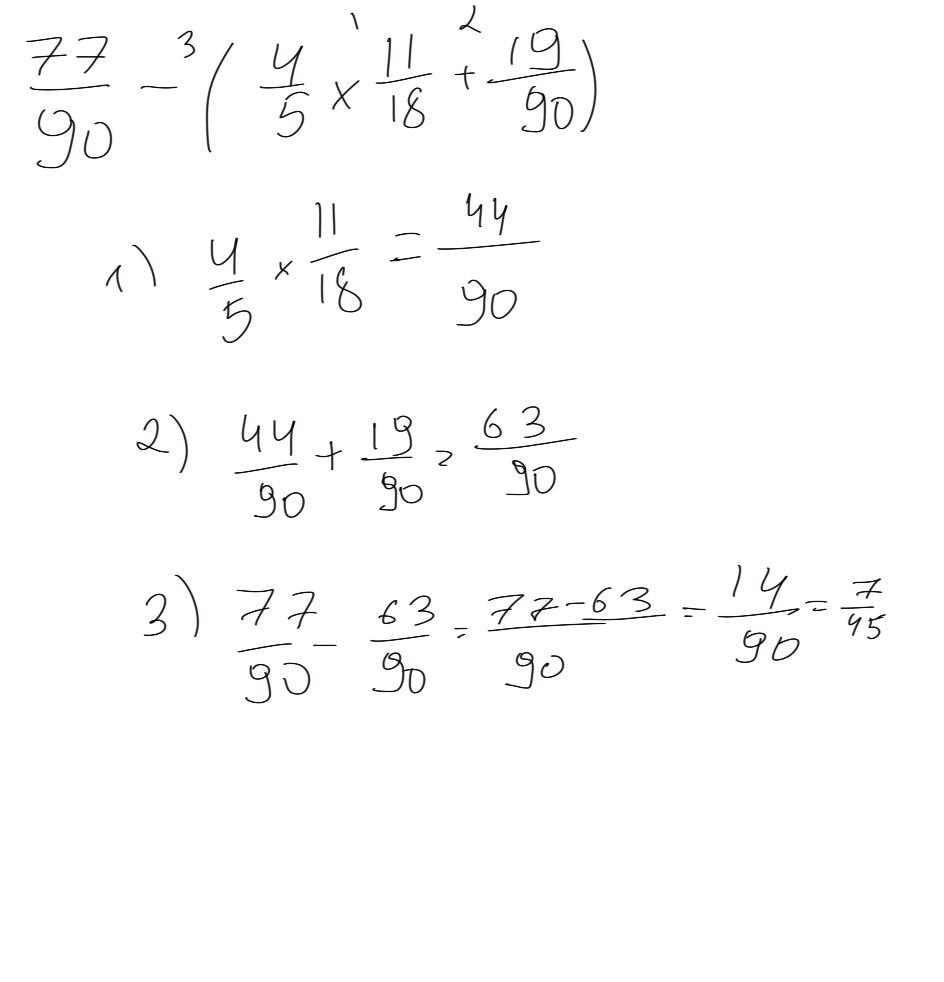 77/90 -³ (4/5 ×¹ 11/18 +² 19/90)
1) 4/5 × 11/18 = 44/90
2) 44/90 + 19/90 = 63/90
3) 77/90 - 63/90 = 77-63/90 = 14/90 = 7/45